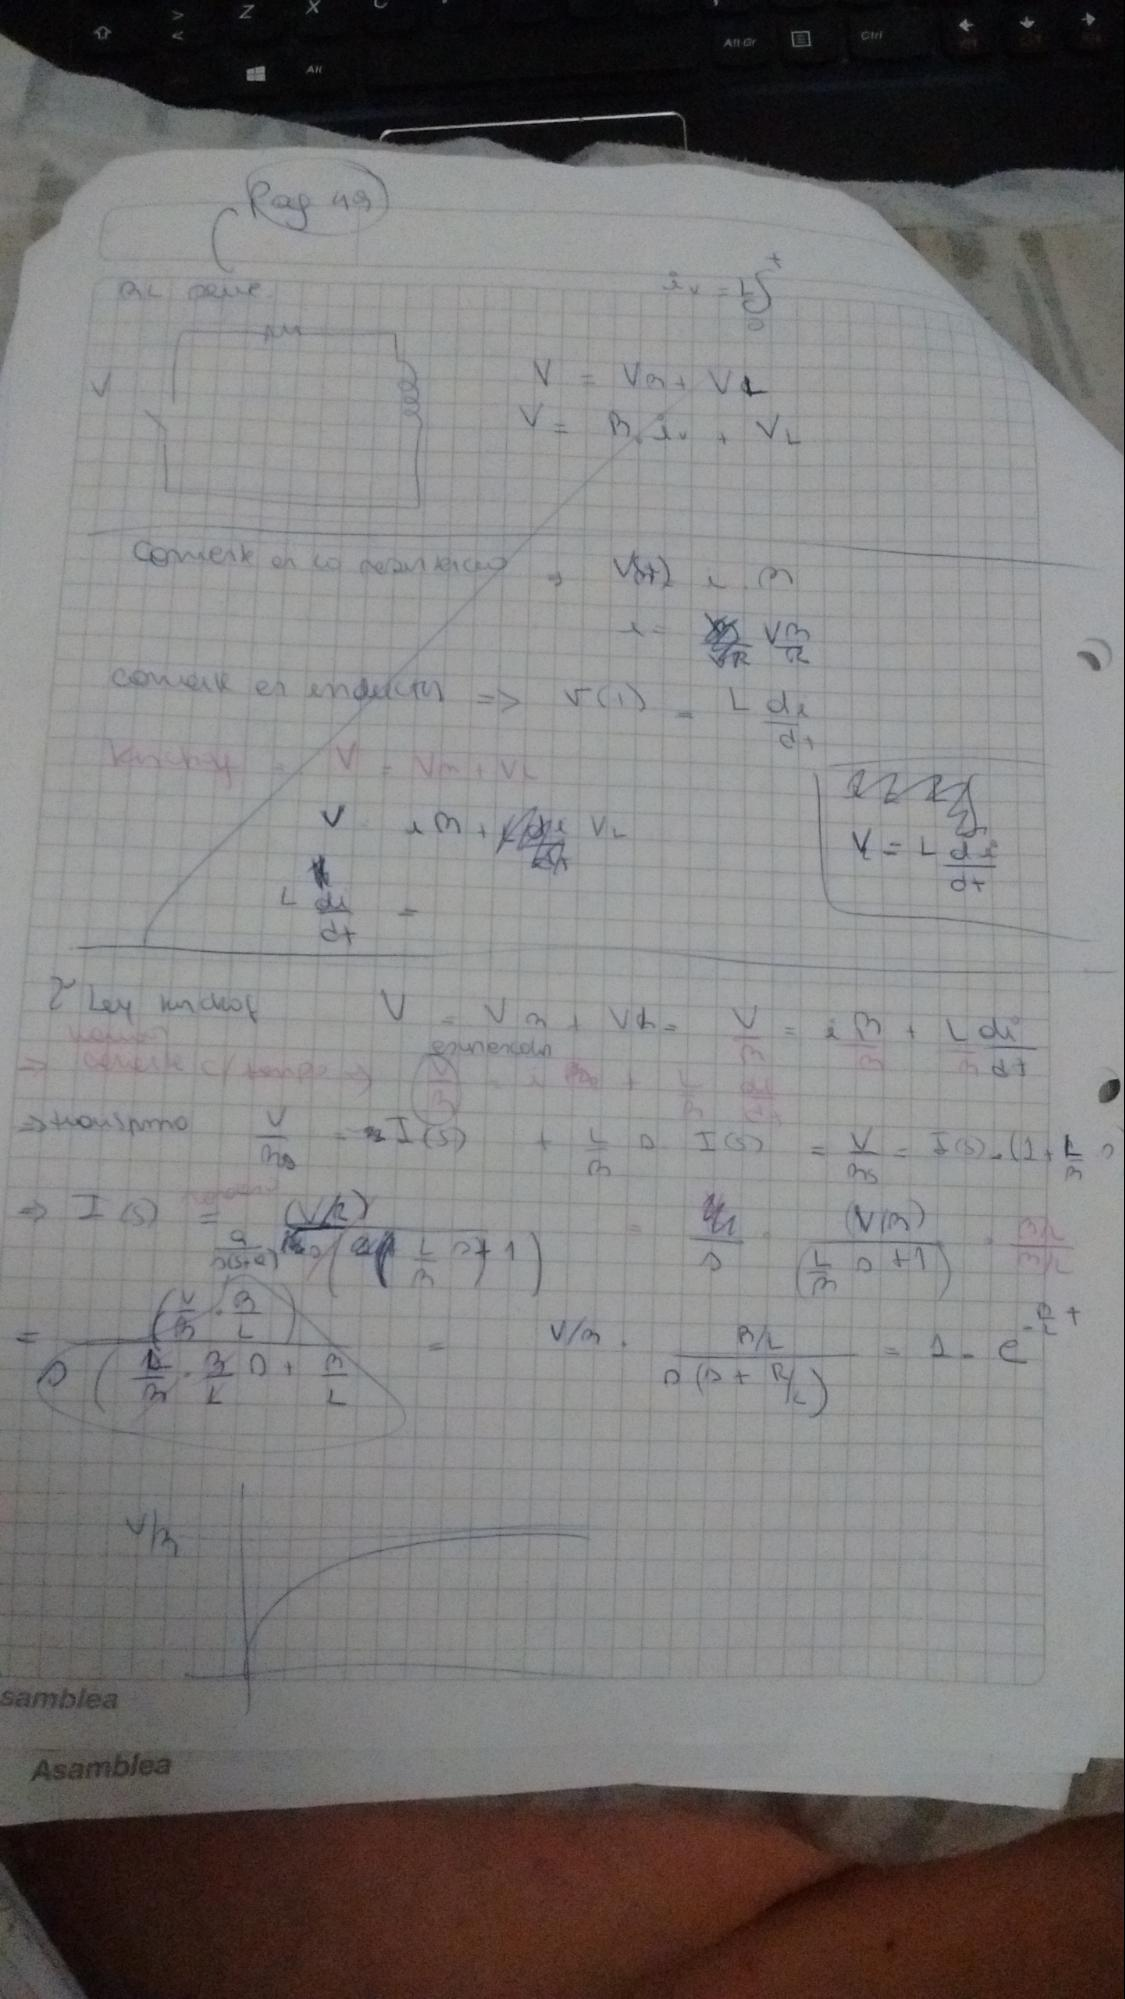 Z X
Alt
Alt Gr
Ctrl
Pag 49
RL serie
V
V = VR + VL
V = R . iv + VL
corriente en la resistencia => V(t) i . R
i = VR/R
corriente en inductor => v(t) = L di/dt
Kirchof = V = VR + VL
V = iR + VL
V = L di/dt
L di/dt =
2° Ley Kirchof V = VR + VL = V/R = i R/R + L/R di/dt
corriente c/ tiempo => V/R = i + L/R di/dt
=> transformo V/Rs = I(s) + L/R s I(s) = V/Rs = I(s) . (1 + L/R s
=> I(s) = (V/R) / s(L/R s + 1) = 1/s . (V/R) / (L/R s + 1) . R/L / R/L
a/s(s+a)
= (V/R . R/L) / s(L/R . R/L s + R/L = V/R . R/L / s(s + R/L) = 1 - e^-R/L t
V/R
samblea
Asamblea